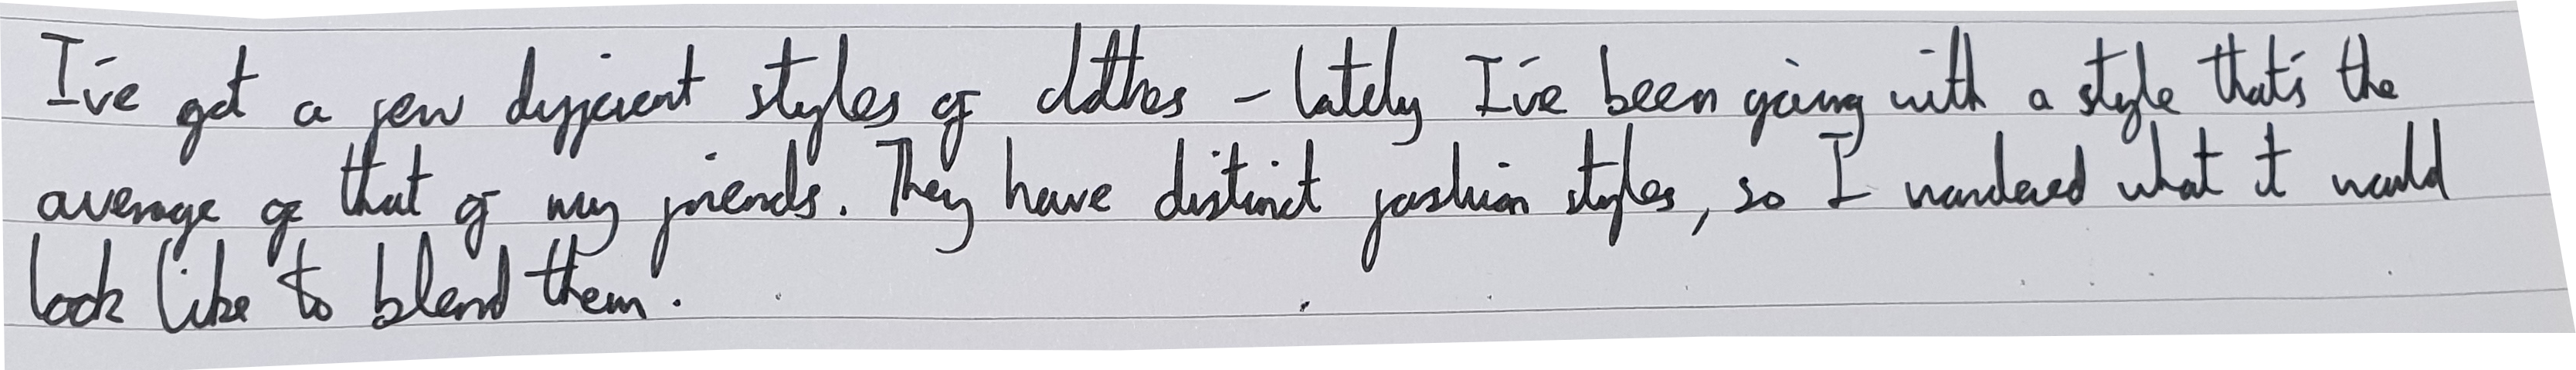 I've got a few different styles of clothes - lately I've been going with a style that's the
average of that of my friends. They have distinct fashion styles, so I wondered what it would
look like to blend them.